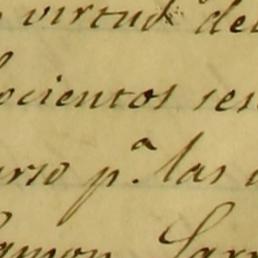 virtud de
ocientos ses
urso p.ª las
amon